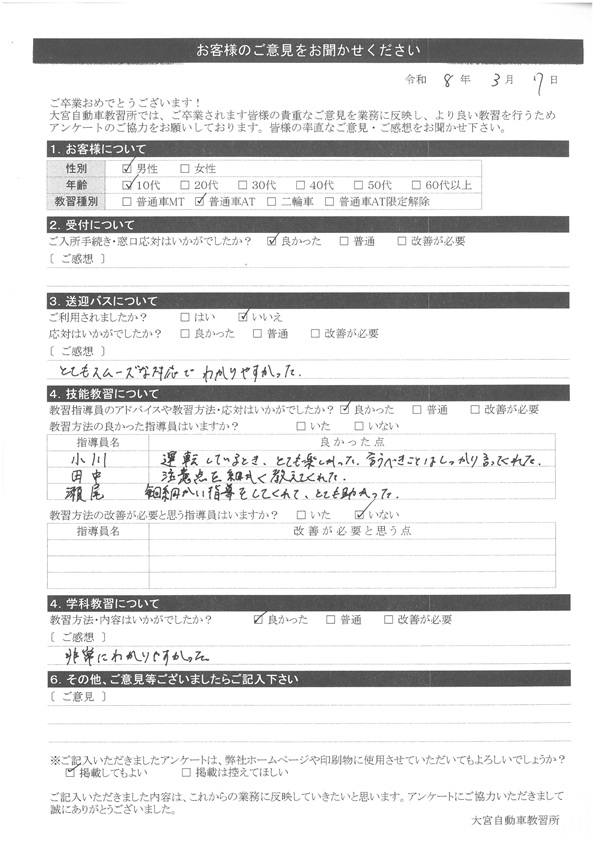 お客様のご意見をお聞かせください
令和 8年 3月 7日
ご卒業おめでとうございます！
大宮自動車教習所では、ご卒業されます皆様の貴重なご意見を業務に反映し、より良い教習を行うため
アンケートのご協力をお願いしております。皆様の率直なご意見・ご感想をお聞かせ下さい。
1. お客様について
性別 ☑男性 □女性
年齢 ☑10代 □20代 □30代 □40代 □50代 □60代以上
教習種別 □普通車MT ☑普通車AT □二輪車 □普通車AT限定解除
2. 受付について
ご入所手続き・窓口応対はいかがでしたか？ ☑良かった □普通 □改善が必要
[ ご感想 ]
3. 送迎バスについて
ご利用されましたか？ □はい ☑いいえ
応対はいかがでしたか？ □良かった □普通 □改善が必要
[ ご感想 ]
とてもスムーズな対応でわかりやすかった。
4. 技能教習について
教習指導員のアドバイスや教習方法・応対はいかがでしたか？ ☑良かった □普通 □改善が必要
教習方法の良かった指導員はいますか？ □いた □いない
指導員名 良かった点
小川 運転しているとき、とても楽しかった。言うべきことはしっかり言ってくれた。
田中 注意点を細かく教えてくれた。
瀬尾 細かい指導をしてくれて、とても助かった。
教習方法の改善が必要と思う指導員はいますか？ □いた ☑いない
指導員名 改善が必要と思う点
4. 学科教習について
教習方法・内容はいかがでしたか？ ☑良かった □普通 □改善が必要
[ ご感想 ]
非常にわかりやすかった
6. その他、ご意見等ございましたらご記入下さい
[ ご意見 ]
※ご記入いただきましたアンケートは、弊社ホームページや印刷物に使用させていただいてもよろしいでしょうか？
☑掲載してもよい □掲載は控えてほしい
ご記入いただきました内容は、これからの業務に反映していきたいと思います。アンケートにご協力いただきまして
誠にありがとうございました。
大宮自動車教習所